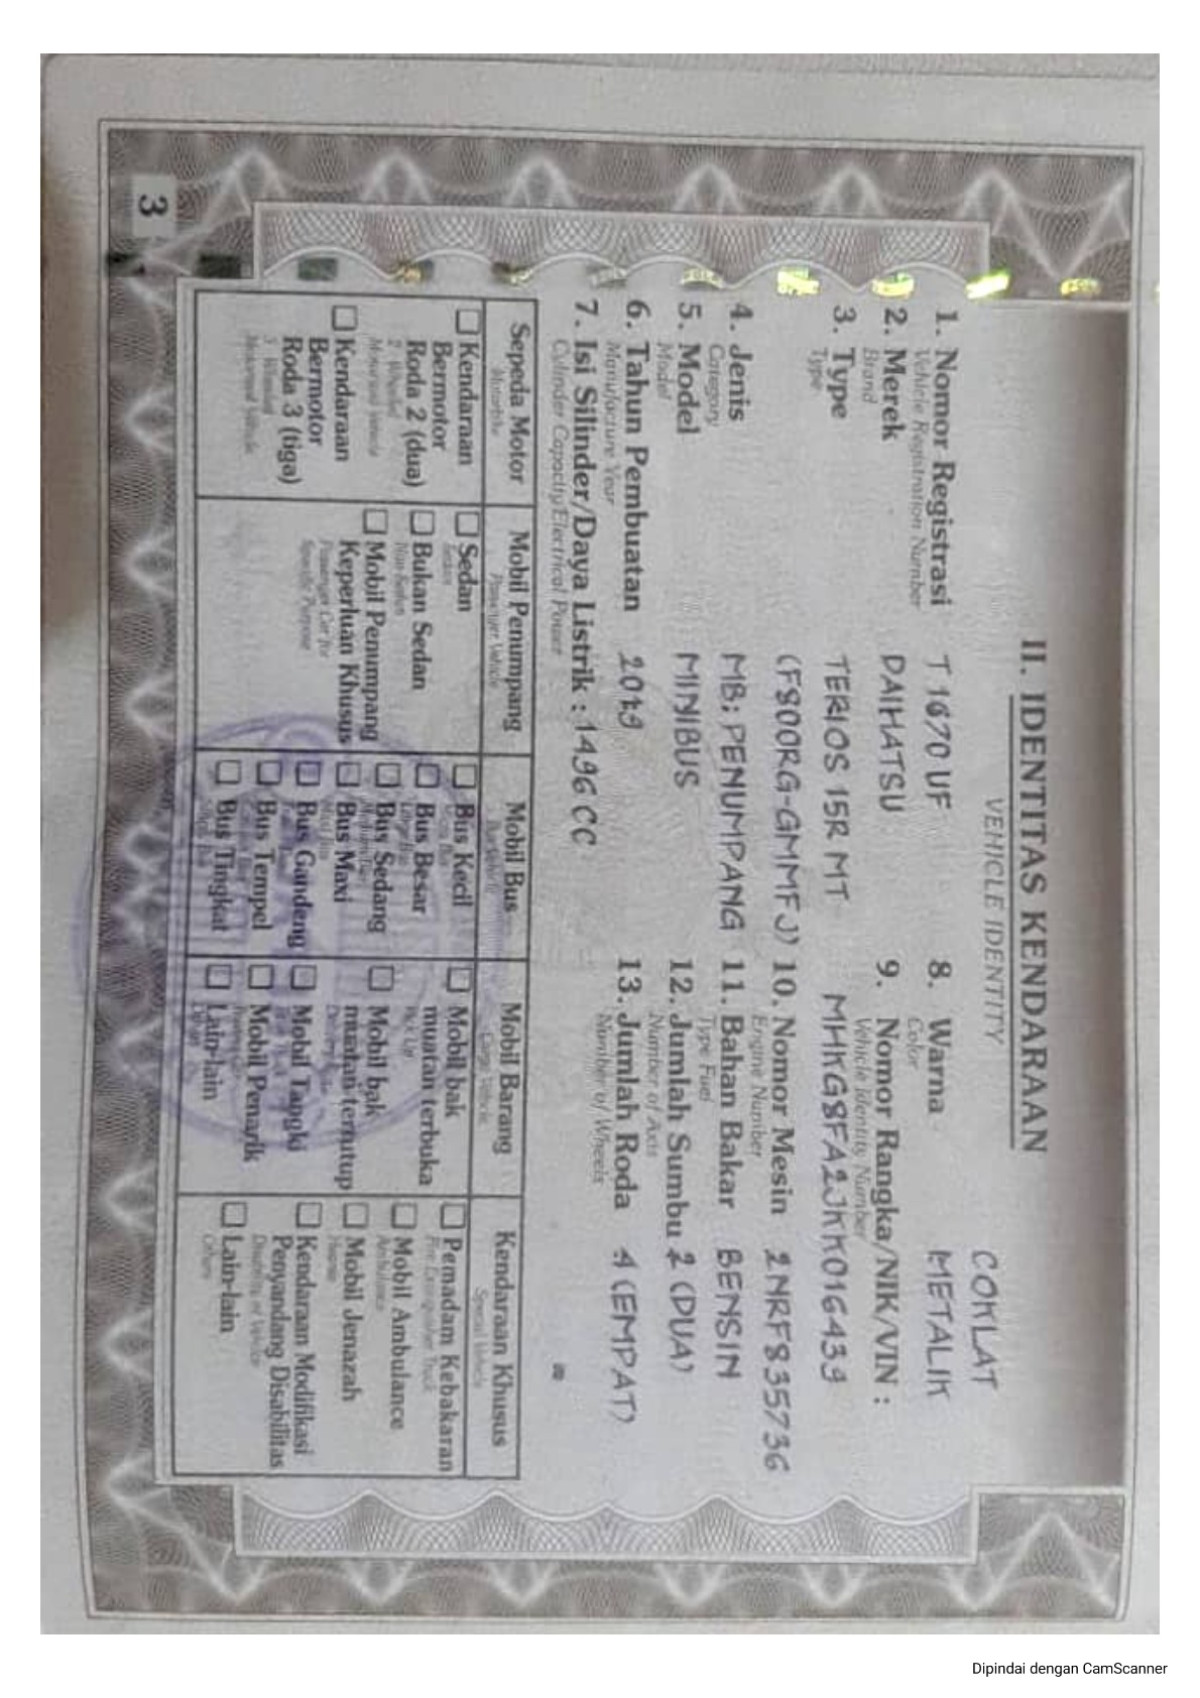 II. IDENTITAS KENDARAAN
VEHICLE IDENTITY
1. Nomor Registrasi T 1670 UF
Vehicle Registration Number
2. Merek DAIHATSU
Brand
3. Type TERIOS 15R MT
Type
(F800RG-GMMFJ)
4. Jenis MB; PENUMPANG
Category
5. Model MINIBUS
Model
6. Tahun Pembuatan 2019
Manufacture Year
7. Isi Silinder/Daya Listrik : 1496 CC
Cylinder Capacity/Electrical Power
COKLAT
8. Warna METALIK
Color
9. Nomor Rangka/NIK/VIN :
Vehicle Identity Number
MHKG8FA2JKK016439
10. Nomor Mesin 2NRF835736
Engine Number
11. Bahan Bakar BENSIN
Type Fuel
12. Jumlah Sumbu 2 (DUA)
Number of Axis
13. Jumlah Roda 4 (EMPAT)
Number of Wheels
Sepeda Motor
Motorbike
Kendaraan
Bermotor
Roda 2 (dua)
2 Wheeled
Motorized Vehicle
Kendaraan
Bermotor
Roda 3 (tiga)
3 Wheeled
Motorized Vehicle
Mobil Penumpang
Passenger Vehicle
Sedan
Sedan
Bukan Sedan
Non Sedan
Mobil Penumpang
Keperluan Khusus
Passenger Car for
Specific Purpose
Mobil Bus
Bus Kecil
Bus Besar
Bus Sedang
Bus Maxi
Bus Gandeng
Bus Tempel
Bus Tingkat
Mobil Barang
Cargo Vehicle
Mobil bak
muatan terbuka
Pick Up
Mobil bak
muatan tertutup
Mobil Tangki
Mobil Penarik
Lain-lain
Kendaraan Khusus
Special Vehicle
Pemadam Kebakaran
Fire Extinguisher Truck
Mobil Ambulance
Ambulance
Mobil Jenazah
Hearse
Kendaraan Modifikasi
Penyandang Disabilitas
Lain-lain
Others
3
Dipindai dengan CamScanner